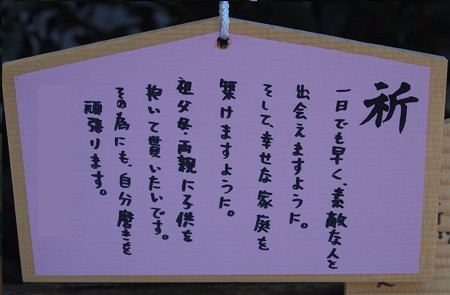 祈
一日でも早く、素敵な人と
出会えますように。
そして、幸せな家庭を
築けますように。
祖父母・両親に子供を
抱いて貰いたいです。
その為にも、自分磨きを
頑張ります。